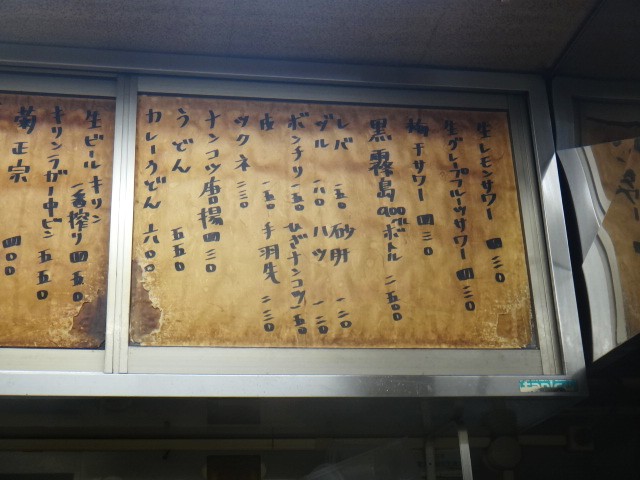 生レモンサワー 四三〇
生グレープフルーツサワー 四三〇
梅干サワー 四三〇
黒霧島900㎖ボトル 二一五〇〇
レバ 一五〇 砂肝 一二〇
ヅル 一八〇 ハツ 一二〇
ボンチリ 一五〇 ひざナンコツ 一五〇
皮 一五〇 手羽先 二二〇
ツクネ 二三〇
ナンコツ唐揚 四三〇
うどん 五五〇
カレーうどん 六〇〇
生ビールキリン一番搾り 四五〇
キリンラガー中ビン 五五〇
菊正宗 四〇〇